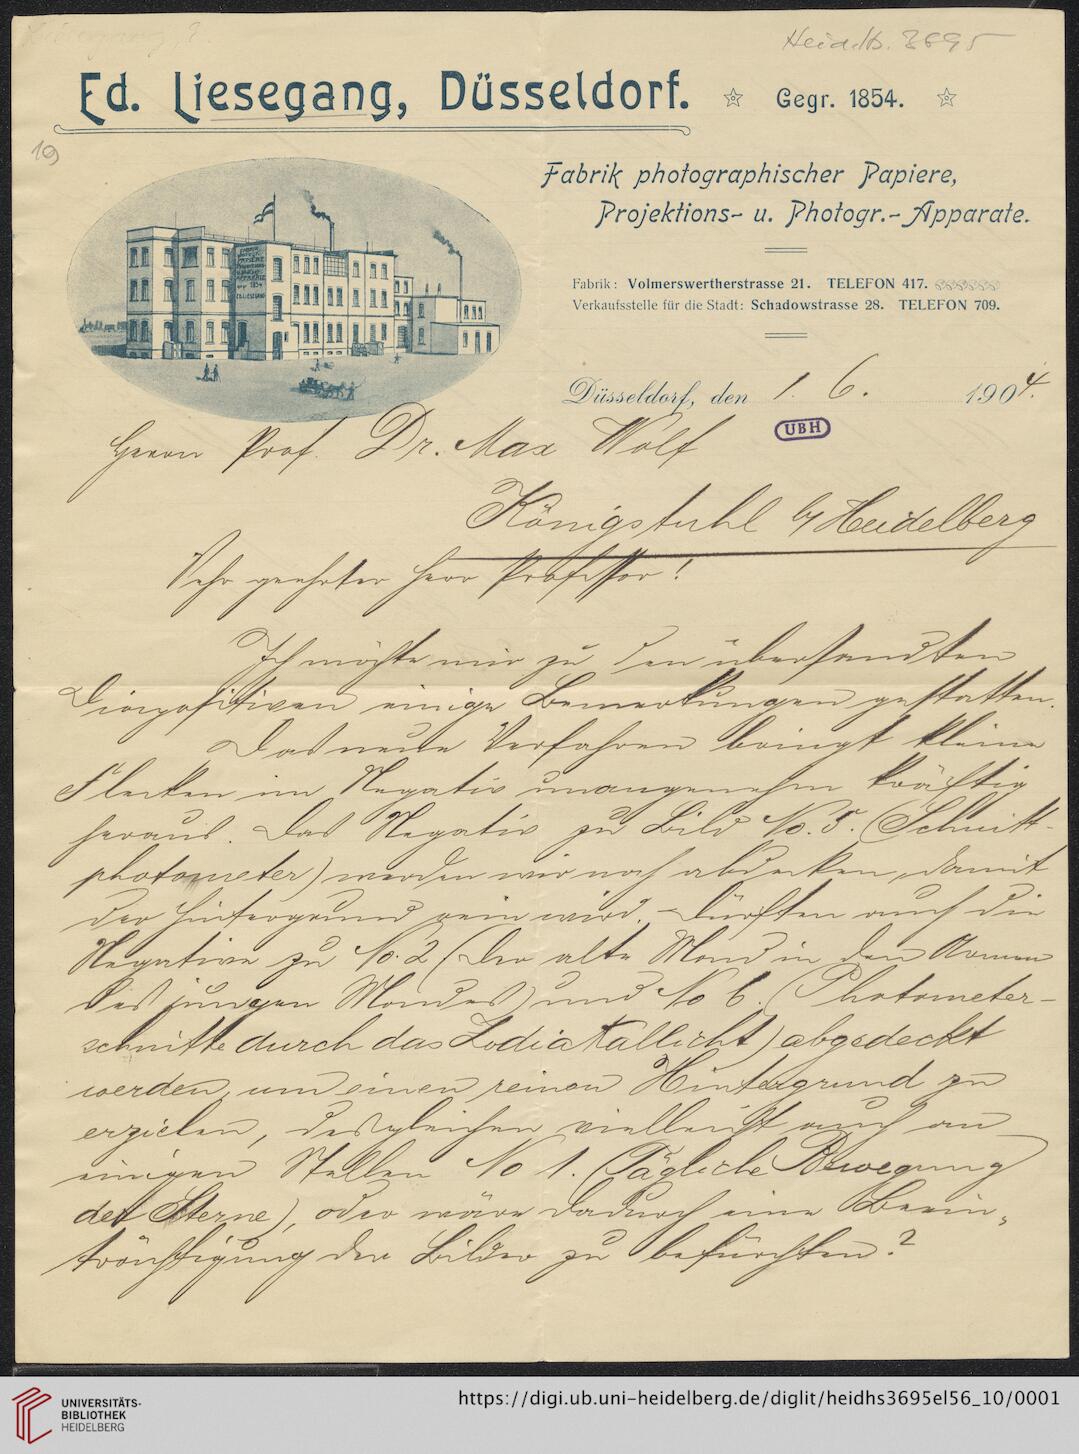 Heidelb. 3695
Ed. Liesegang, Düsseldorf. Gegr. 1854.
19
Fabrik photographischer Papiere,
Projektions- u. Photogr.-Apparate.
Fabrik: Volmerswertherstrasse 21. TELEFON 417.
Verkaufsstelle für die Stadt: Schadowstrasse 28. TELEFON 709.
Düsseldorf, den 1. 6. 1904.
UBH
Herrn Prof. Dr. Max Wolf
Königstuhl b/Heidelberg
Sehr geehrter Herr Professor!
Ich möchte mir zu den übersandten
Diapositiven einige Bemerkungen gestatten.
Das neue Verfahren bringt kleine
Flecken im Negativ unangenehm kräftig
heraus. Das Negativ zu Bild No. 5. (Schnitt-
photometer) werden wir noch abdecken, damit
der Hintergrund rein wird. – Dürften auch die
Negative zu No. 2 (Der alte Mond in den Armen
des jungen Mondes) und No 6. (Photometer-
schnitte durch das Zodiakallicht) abgedeckt
werden, um einen reinen Hintergrund zu
erzielen, desgleichen vielleicht auch an
einigen Stellen No 1. (Tägliche Bewegung
der Sterne), oder wäre dadurch eine Beein-
trächtigung der Bilder zu befürchten?
UNIVERSITÄTS-
BIBLIOTHEK
HEIDELBERG
https://digi.ub.uni-heidelberg.de/diglit/heidhs3695el56_10/0001